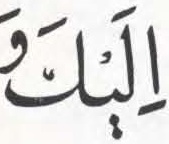 اِلَيْكَ وَ